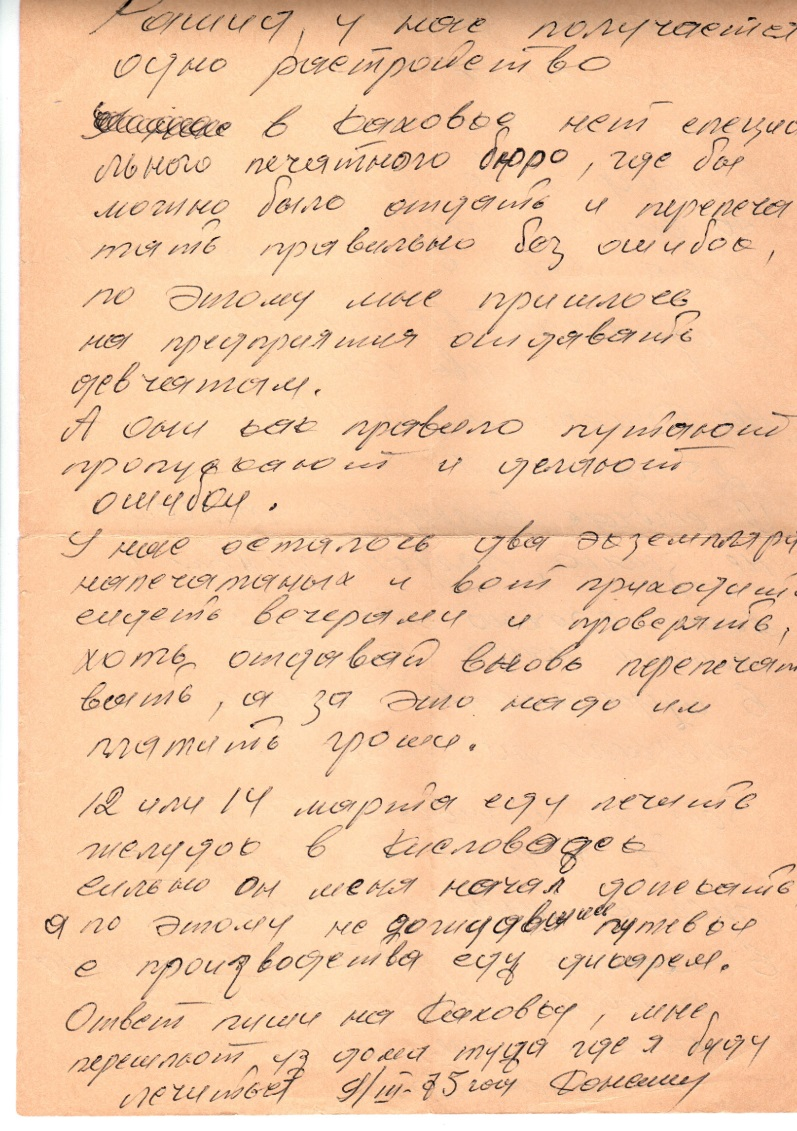 Рашид, у нас получается
одно растройство
в Каховке нет специа
льного печатного бюро, где бы
можно было отдать и перепеча
тать правильно без ошибок,
по этому мне пришлось
на предприятия отдавать
девчатам.
А они как правило путают
пропускают и делают
ошибки.
У нас осталось два экземпляра
напечатаных и вот приходить
сидеть вечерами и проверять,
хоть отдавай вновь перепечат
вать, а за это надо им
платить гроши.
12 или 14 марта еду лечить
желудок в Кисловодск
сильно он меня начал допекать
а по этому не дождавшись путевки
с производства еду дикарем.
Ответ пиши на Каховку, мне
перешлют из дома туда где я буду
лечиться 9/III-75 год